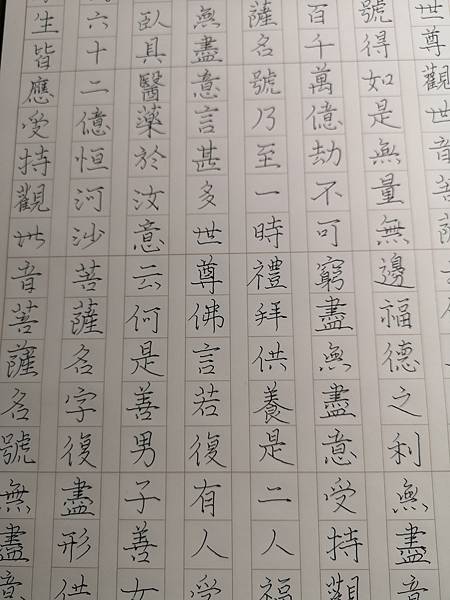 世尊觀世音菩薩
號得如是無量無邊福德之利無盡意
百千萬億劫不可窮盡無盡意受持觀
薩名號乃至一時禮拜供養是二人福
無盡意言甚多世尊佛言若復有人受
臥具醫藥於汝意云何是善男子善女
六十二億恒河沙菩薩名字復盡形供
生皆應受持觀世音菩薩名號無盡意